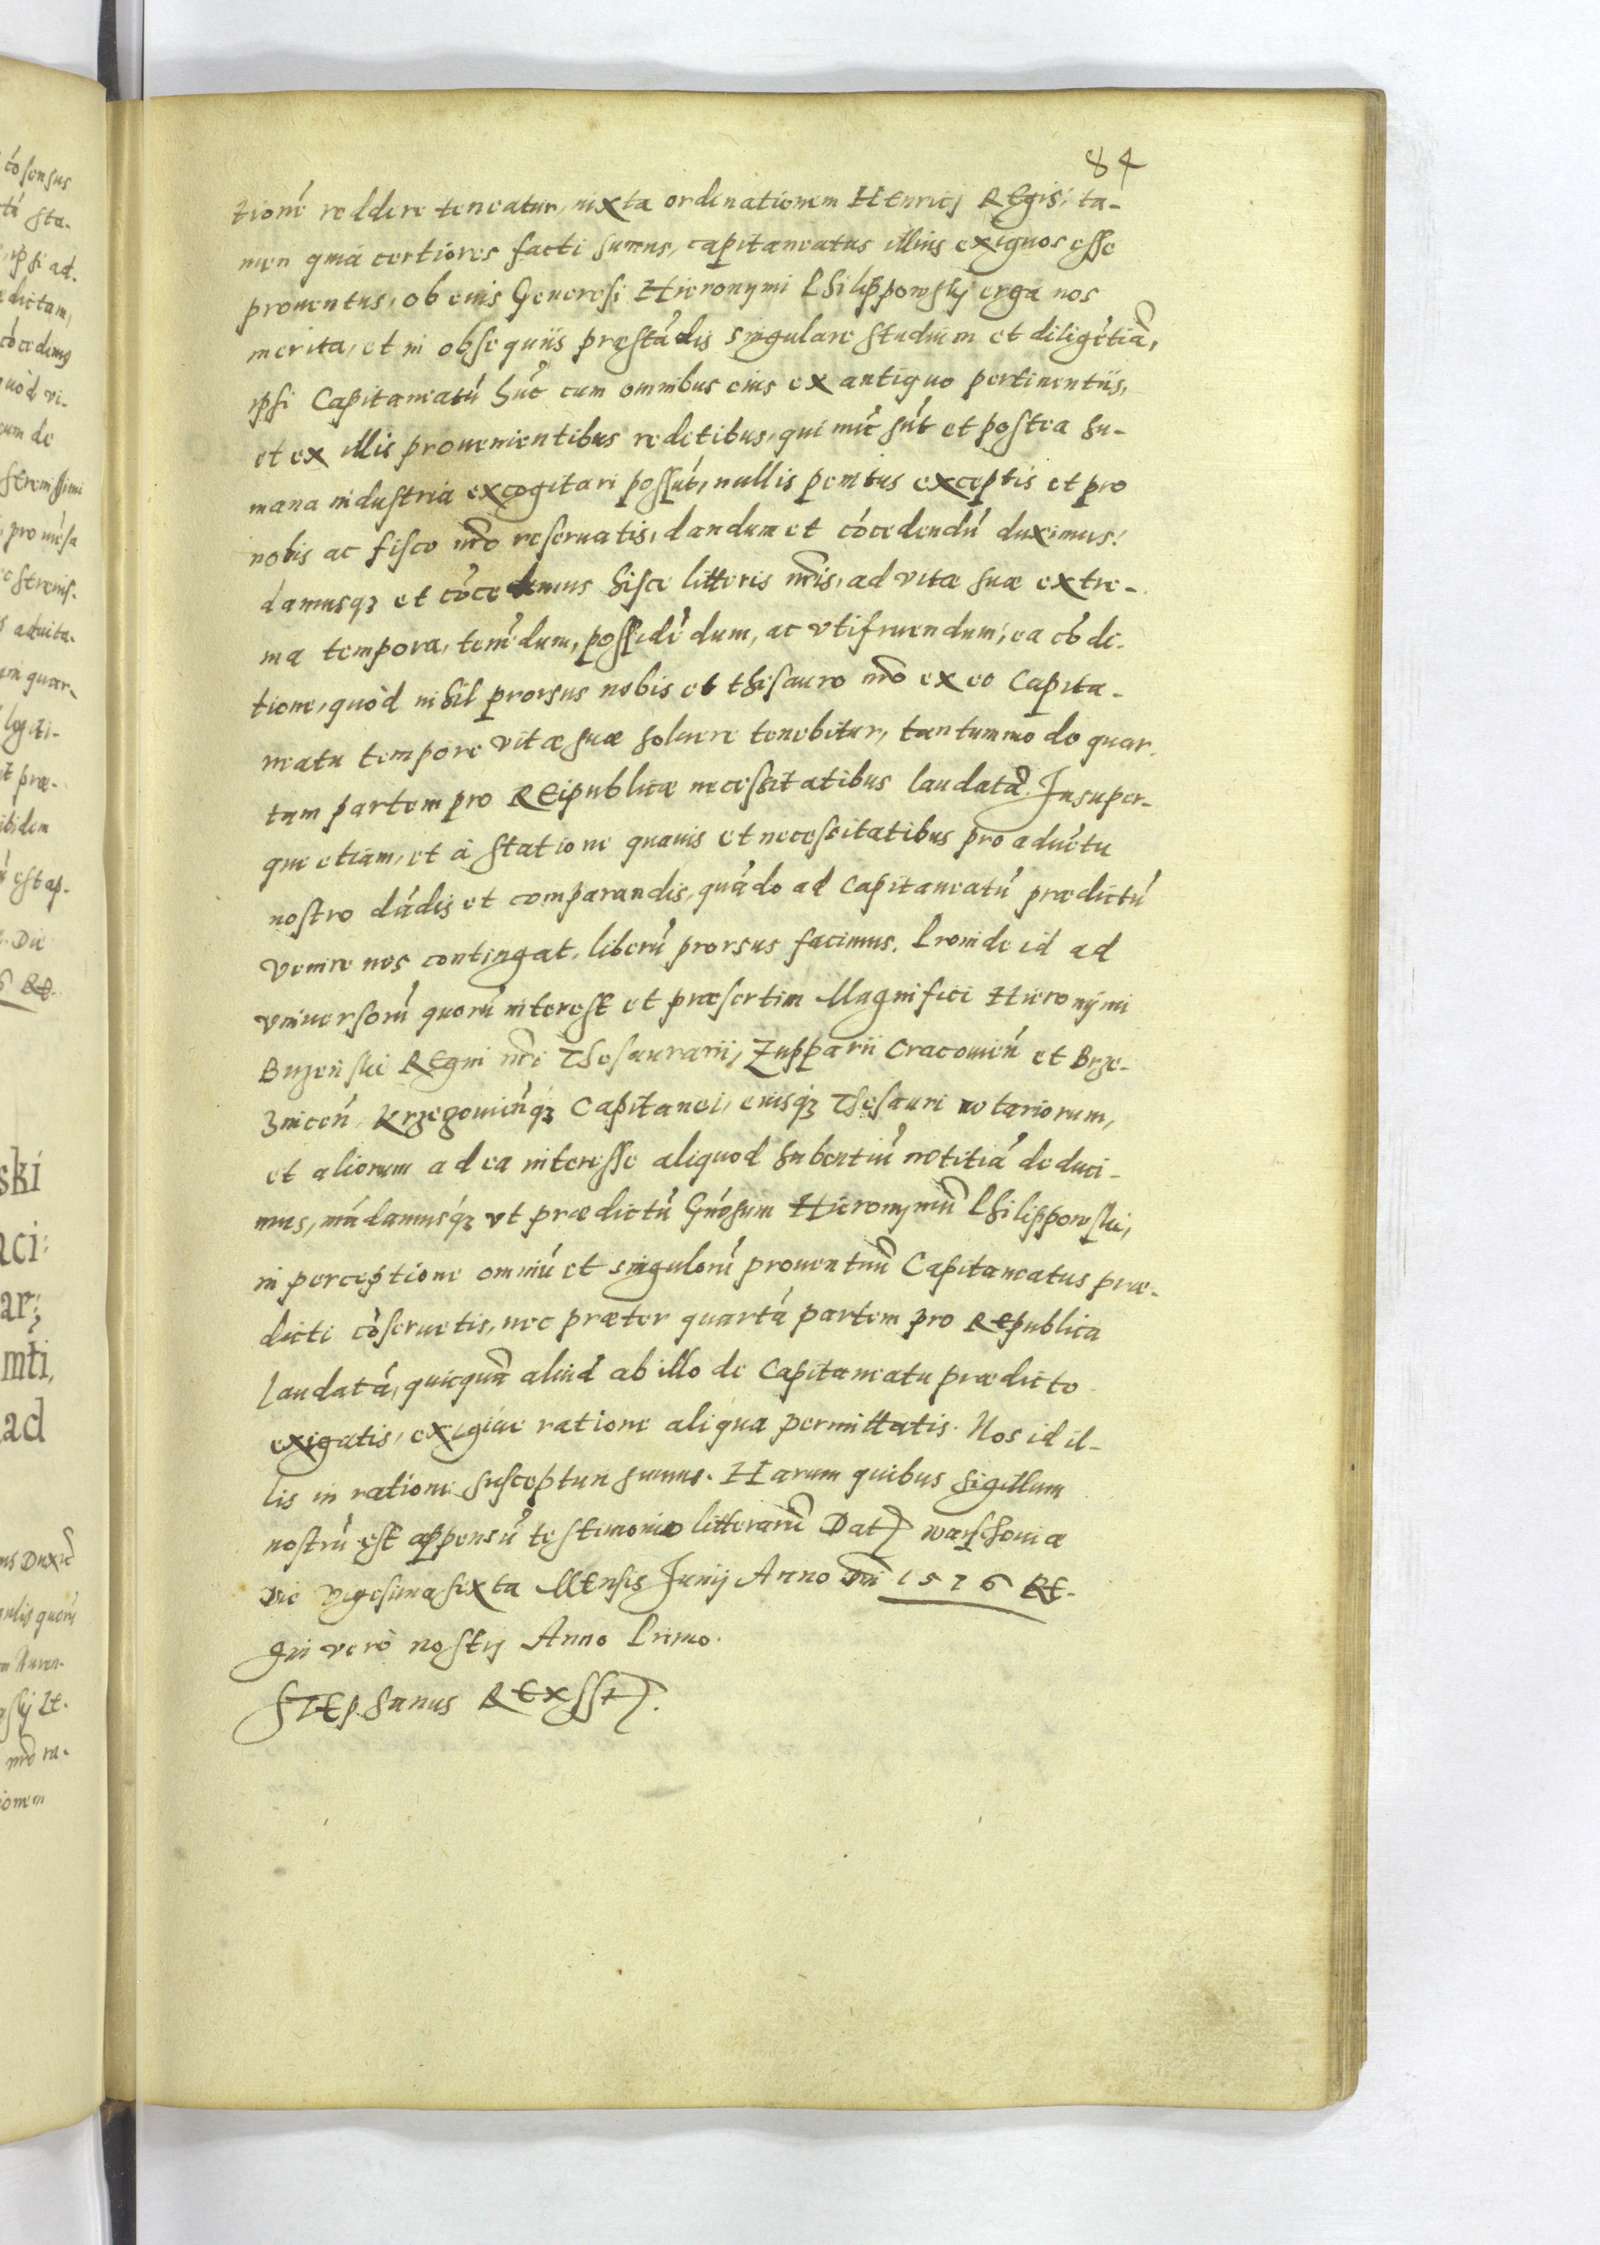 84
tioné reddere teneatur, iuxta ordinationem HEnricj REgis, ta-
men quia certiores facti sumus, capitaneatus illius exiguos esse
prouentus, ob eius Generosi Hieronymi Philippowskij erga nos
merita, et in obsequiis præstádis singulare studium et diligétiã,
ipsi Capitaneatú húc cum omnibus eius ex antiquo pertinentiis,
et ex illis prouenientibus reditibus, qui núc sút et postea hu-
mana industria excogitari possút, nullis penitus exceptis et pro
nobis ac fisco nrõ reseruatis, dandum et cócedendú duximus:
damusqꝫ et cócedimus hisce litteris nrĩs, ad vitæ suæ extre-
ma tempora, tenédum, possidédum, ac vtifruendum, ea códi-
tione, quòd nihil prorsus nobis et thesauro nrõ ex eo Capita-
neatu tempore vitæ suæ soluere tenebitur, tantummodo quar-
tam partem pro REipublicæ necessitatibus laudatã. Insuper-
que etiam, et à statione quauis et necessitatibus pro aduétu
nostro dádis et comparandis, quádo ad Capitaneatú prædictú
venire nos contingat, liberú prorsus facimus. Proinde id ad
vniuersorú quorú interest et præsertim Magnifici Hieronymi
Buzenski REgni nrĩ Thesaurarii, Zupparii Cracouień et Brze-
znicen̄, Krzeczouień̄qꝫ Capitanei, eiusqꝫ Thesauri notariorum,
et aliorum ad ea interesse aliquod habentiú notitiá deduci-
mus, mádamusqꝫ vt prædictú Gńosum Hieronymũ Philippowski,
in perceptione omniú et singulorú prouentuũ Capitaneatus præ-
dicti cóseruetis, nec præter quartá partem pro REpublica
laudatá, quicquã aliud ab illo de Capitaneatu prædicto
exigatis, exigiue ratione aliqua permittatis. Nos id il-
lis in rationé suscepturi sumus. Harum quibus sigillum
nostrú est appensú testimonio litterarũ Dat̄ warschouiæ
Die vigesima sixta MEnsis Junij Anno Dn̄i 1576 RE-
gni verò nostrj Anno Primo.
STEphanus REx sst̄.